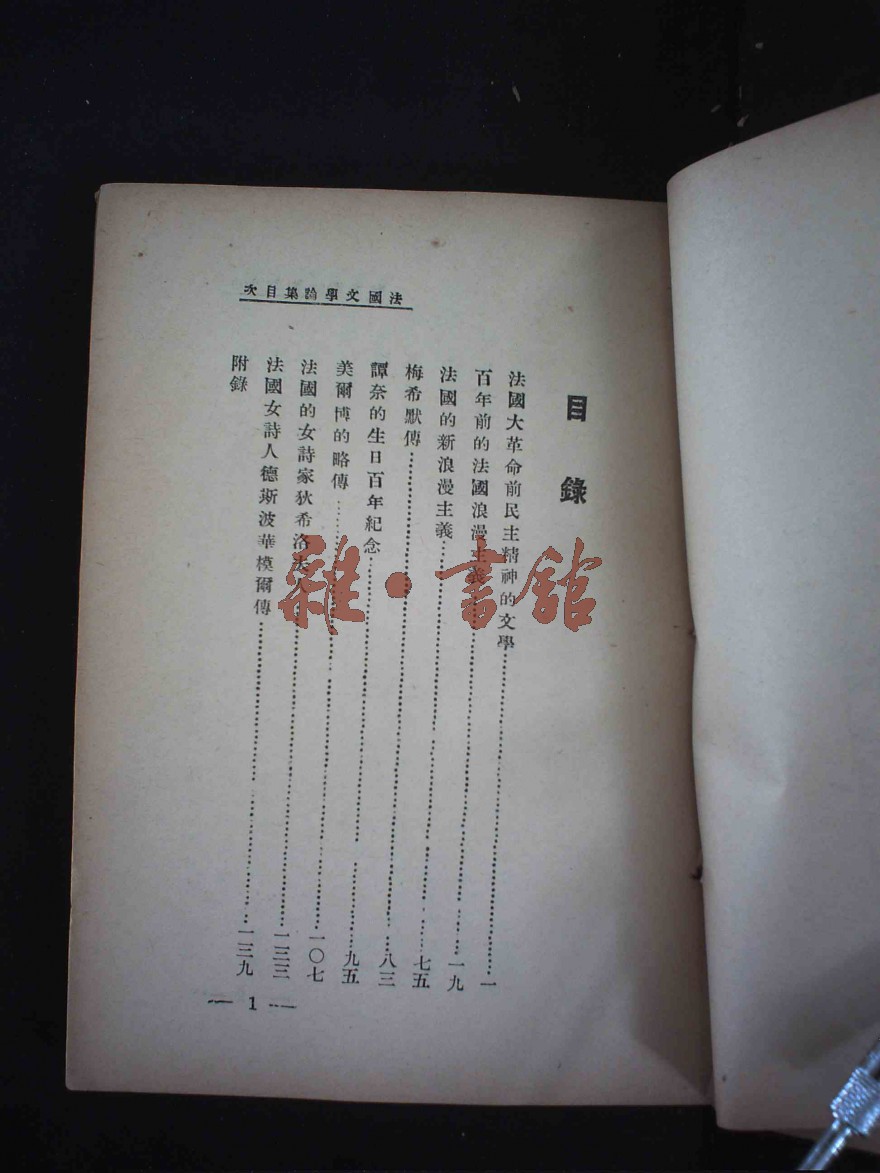 法國文學論集目次
目錄
法國大革命前民主精神的文學……一
百年前的法國浪漫主義……一九
法國的新浪漫主義……七五
梅希默傳……八三
譚奈的生日百年紀念……九五
美爾博的略傳……一〇七
法國的女詩家狄希洛夫人……一三三
法國女詩人德斯波華模爾傳……一三九
附錄
— 1 —
雜·書館